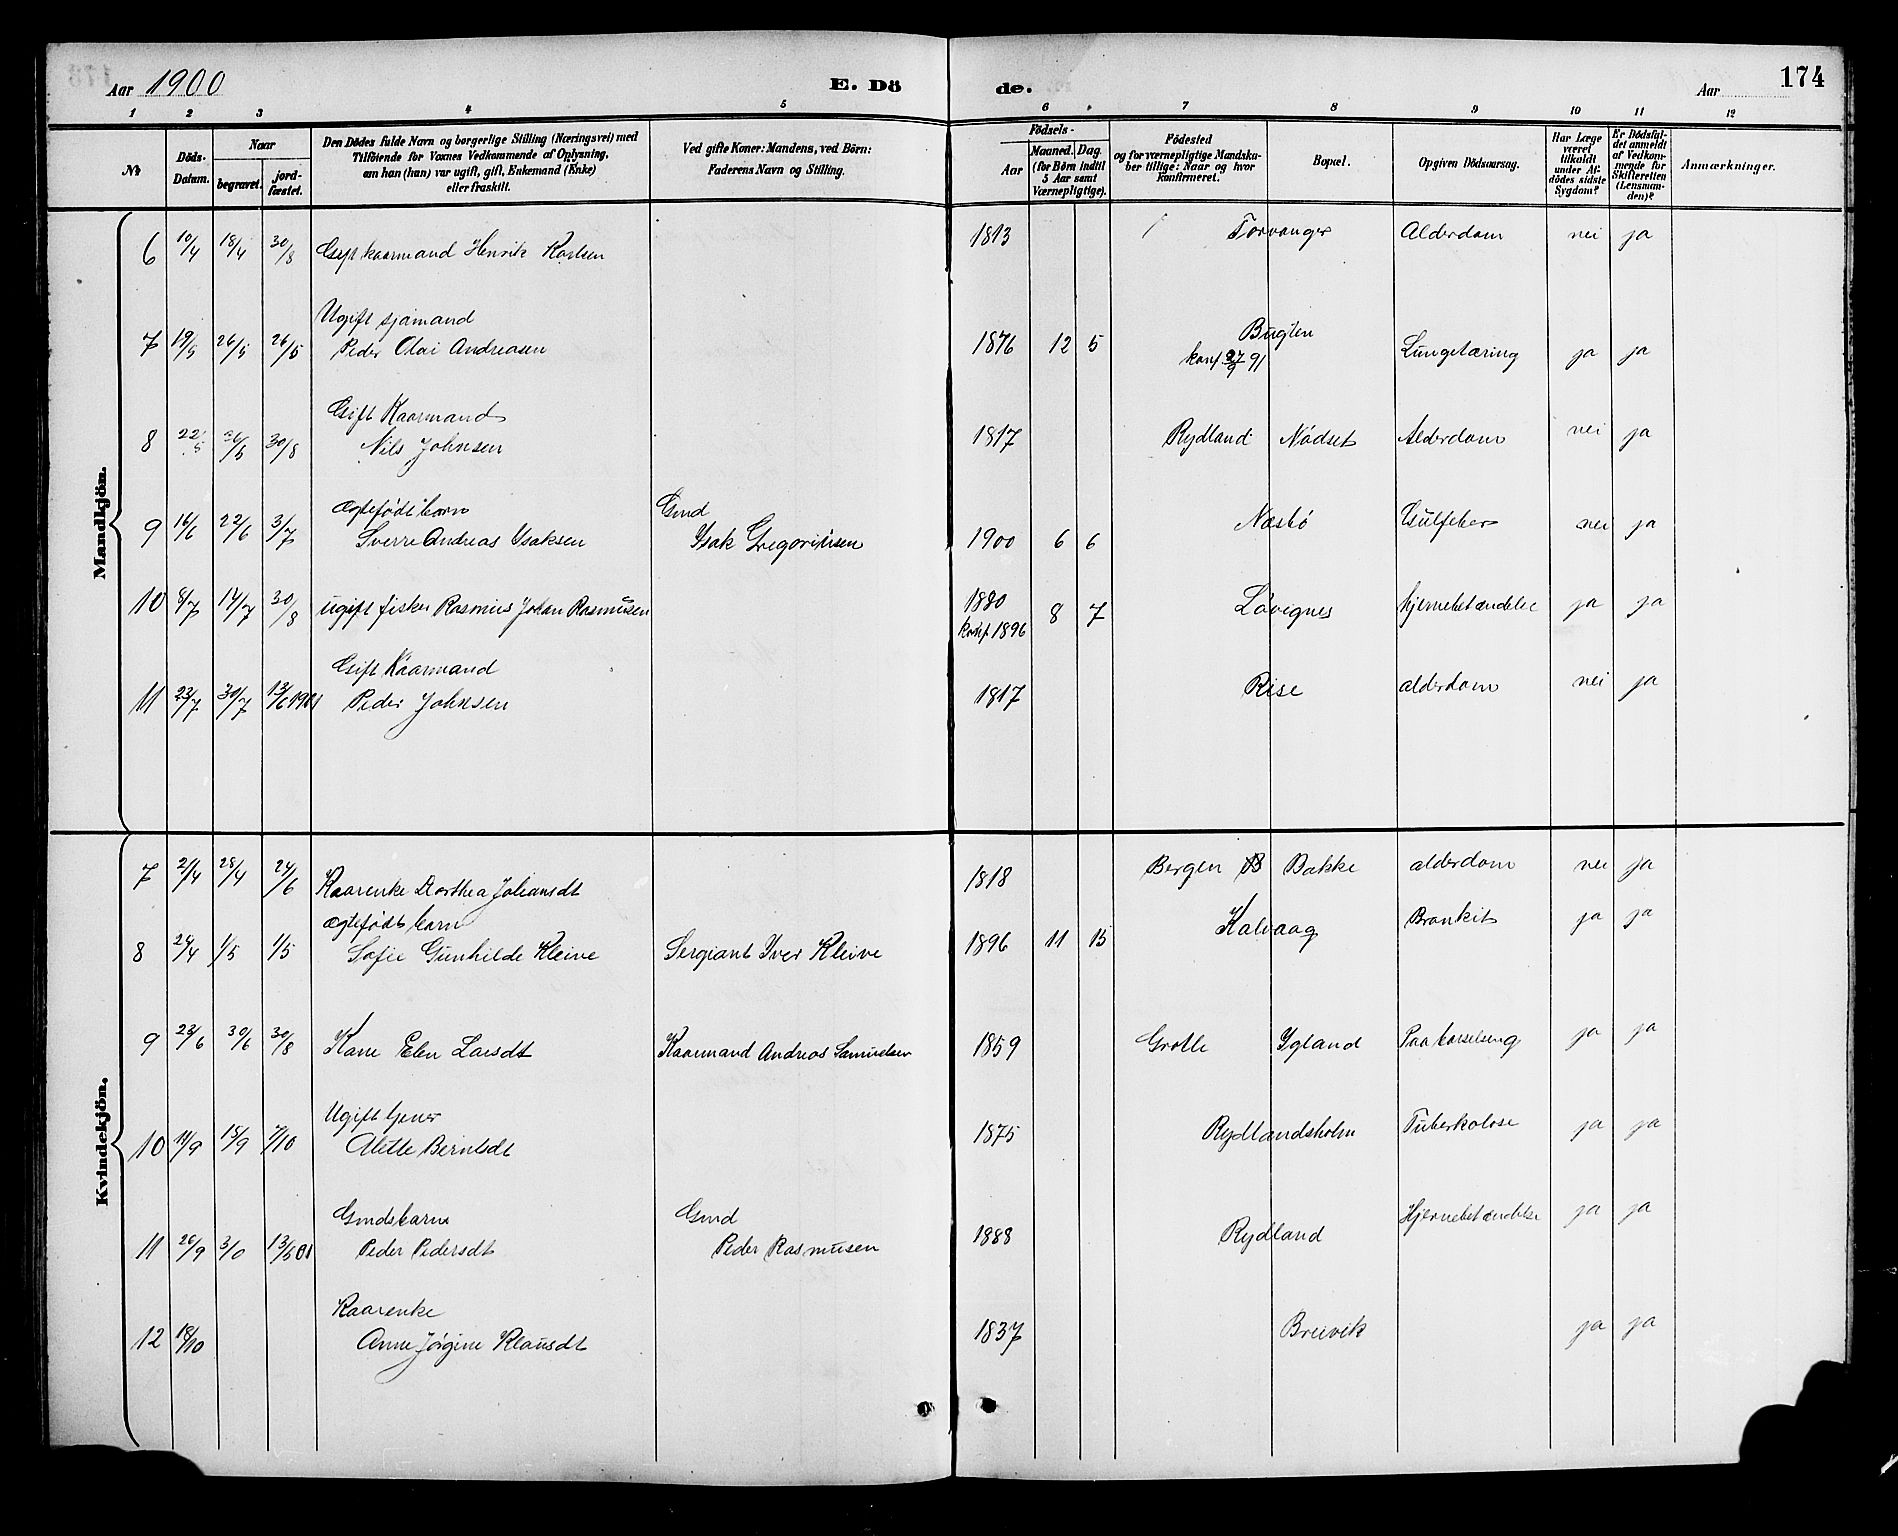 Aar 1900 E. Dö
de. Aar 174
1 2 3 4 5 6 7 8 9 10 11 12
No Döds-Datum. Naar begravet. jord-fæstet. Den Dödes fulde Navn og borgerlige Stilling (Næringsvei) med Tilföiende for Voxnes Vedkommende af Oplysning, om han (hun) var ugift, gift, Enkemand (Enke) eller fraskilt. Ved gifte Koner: Mandens, ved Börn: Faderens Navn og Stilling. Födsels- Aar Maaned. Dag. (for Börn indtil 5 Aar samt Værnepligtige). Födested og for værnepligtige Mandska-ber tillige: Naar og hvor konfirmeret. Bopæl. Opgiven Dödsaarsag. Har Læge været tilkaldt under Af-dödes sidste Sygdom? Er Dödsfal-det anmeldt af Vedkom-mende for Skifteretten (Lensman-den)? Anmærkninger.
Mandkjön.
6 10/4 18/4 30/8 Gift kaarmand Henrik Karlsen 1813 Torvanger Alderdom nei ja
7 19/5 26/5 26/5 Ugift sjömand
Peder Olai Andreasen 1876 12 5 Bugten
konf 27/9 91 Lungetæring ja ja
8 22/5 26/5 30/8 Gift Kaarmand
Nils Johnsen 1817 Rydland Nödset Alderdom nei ja
9 16/6 22/6 3/7 Ægtefödt barn
Sverre Andreas Isaksen Gmd
Isak Gregoriusen 1900 6 6 Næsbö Gulfeber nei ja
10 8/7 14/7 30/8 ugift fisker Rasmus Johan Rasmusen 1880
konf. 1896 8 7 Lövignes hjernebetændelse ja ja
11 23/7 30/7 13/6 1901 Gift Kaarmand
Peder Johnsen 1817 Rise alderdom nei ja
Kvindekjön.
7 21/4 28/4 24/6 Kaarenke Dorthea Johansdt 1818 Bergen Bakke alderdom nei ja
8 24/4 1/5 1/5 ægtefødt barn
Sofie Gunhilde Kleive Sergiant Iver Kleive 1896 11 15 Kalvaag Bronkit ja ja
9 23/6 30/6 30/8 Kone Elen Larsdt Kaarmand Andreas Samuelsen 1859 Grotle Ygland Paa barselseng ja ja
10 11/9 18/9 7/10 Ugift tjener
Alette Berntsdt 1875 Rydlandsholm Tuberkolose ja ja
11 26/9 3/0 13/6 01 Gmdsbarn
Peder Pedersdt Gmd
Peder Rasmusen 1888 Rydland Hjernebetændelse ja ja
12 18/10 Kaarenke
Anne Jörgine Klausdt 1837 Breivik ja ja